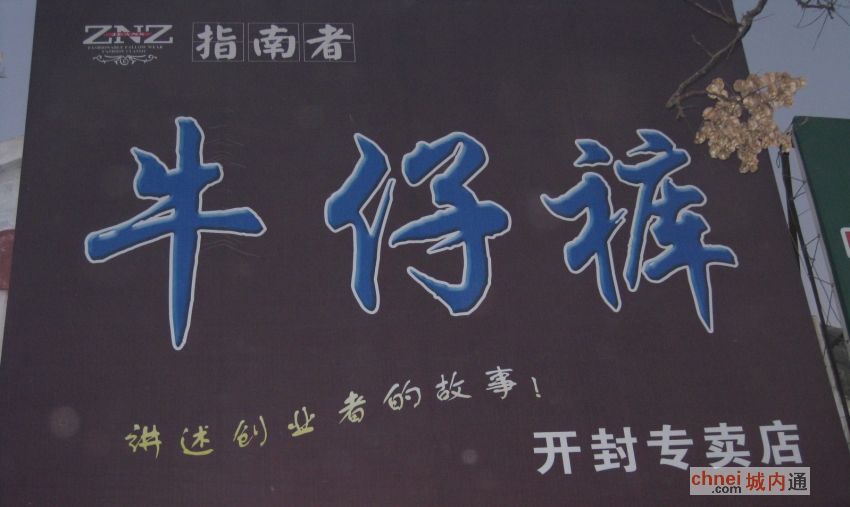 ZNZ
JEANS
指南者
牛仔裤
讲述创业者的故事！
开封专卖店
chnei 城内通
.com